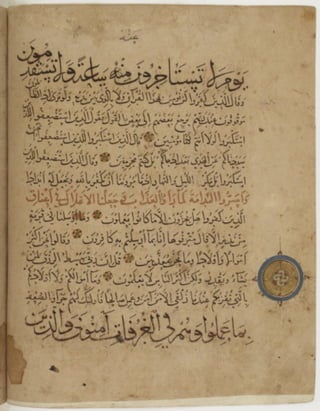 يوم لا تستأخرون عنه ساعة ولا تستقدمون
وقال الذين كفروا لن نؤمن بهذا القرآن ولا بالذي بين يديه ولو ترى إذ الظالمون
موقوفون عند ربهم يرجع بعضهم إلى بعض القول يقول الذين استضعفوا للذين
استكبروا لولا أنتم لكنا مؤمنين قال الذين استكبروا للذين استضعفوا أنحن
صددناكم عن الهدى بعد إذ جاءكم بل كنتم مجرمين وقال الذين استضعفوا للذين
استكبروا بل مكر الليل والنهار إذ تأمروننا أن نكفر بالله ونجعل له أندادا
وأسروا الندامة لما رأوا العذاب وجعلنا الأغلال في أعناق
الذين كفروا هل يجزون إلا ما كانوا يعملون وما أرسلنا في قرية
من نذير إلا قال مترفوها إنا بما أرسلتم به كافرون وقالوا نحن أكثر
أموالا وأولادا وما نحن بمعذبين قل إن ربي يبسط الرزق لمن
يشاء ويقدر ولكن أكثر الناس لا يعلمون وما أموالكم ولا أولادكم
بالتي تقربكم عندنا زلفى إلا من آمن وعمل صالحا فأولئك لهم جزاء الضعف
بما عملوا وهم في الغرفات آمنون والذين